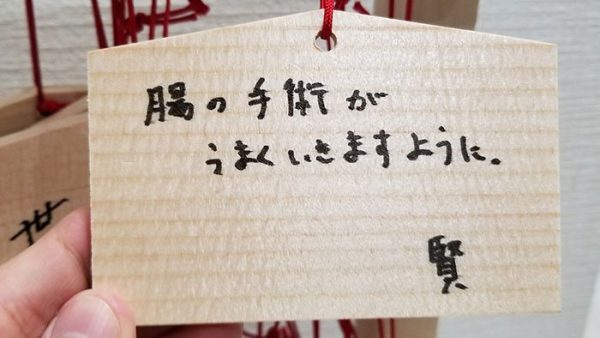 腸の手術が
うまくいきますように。
賢
世